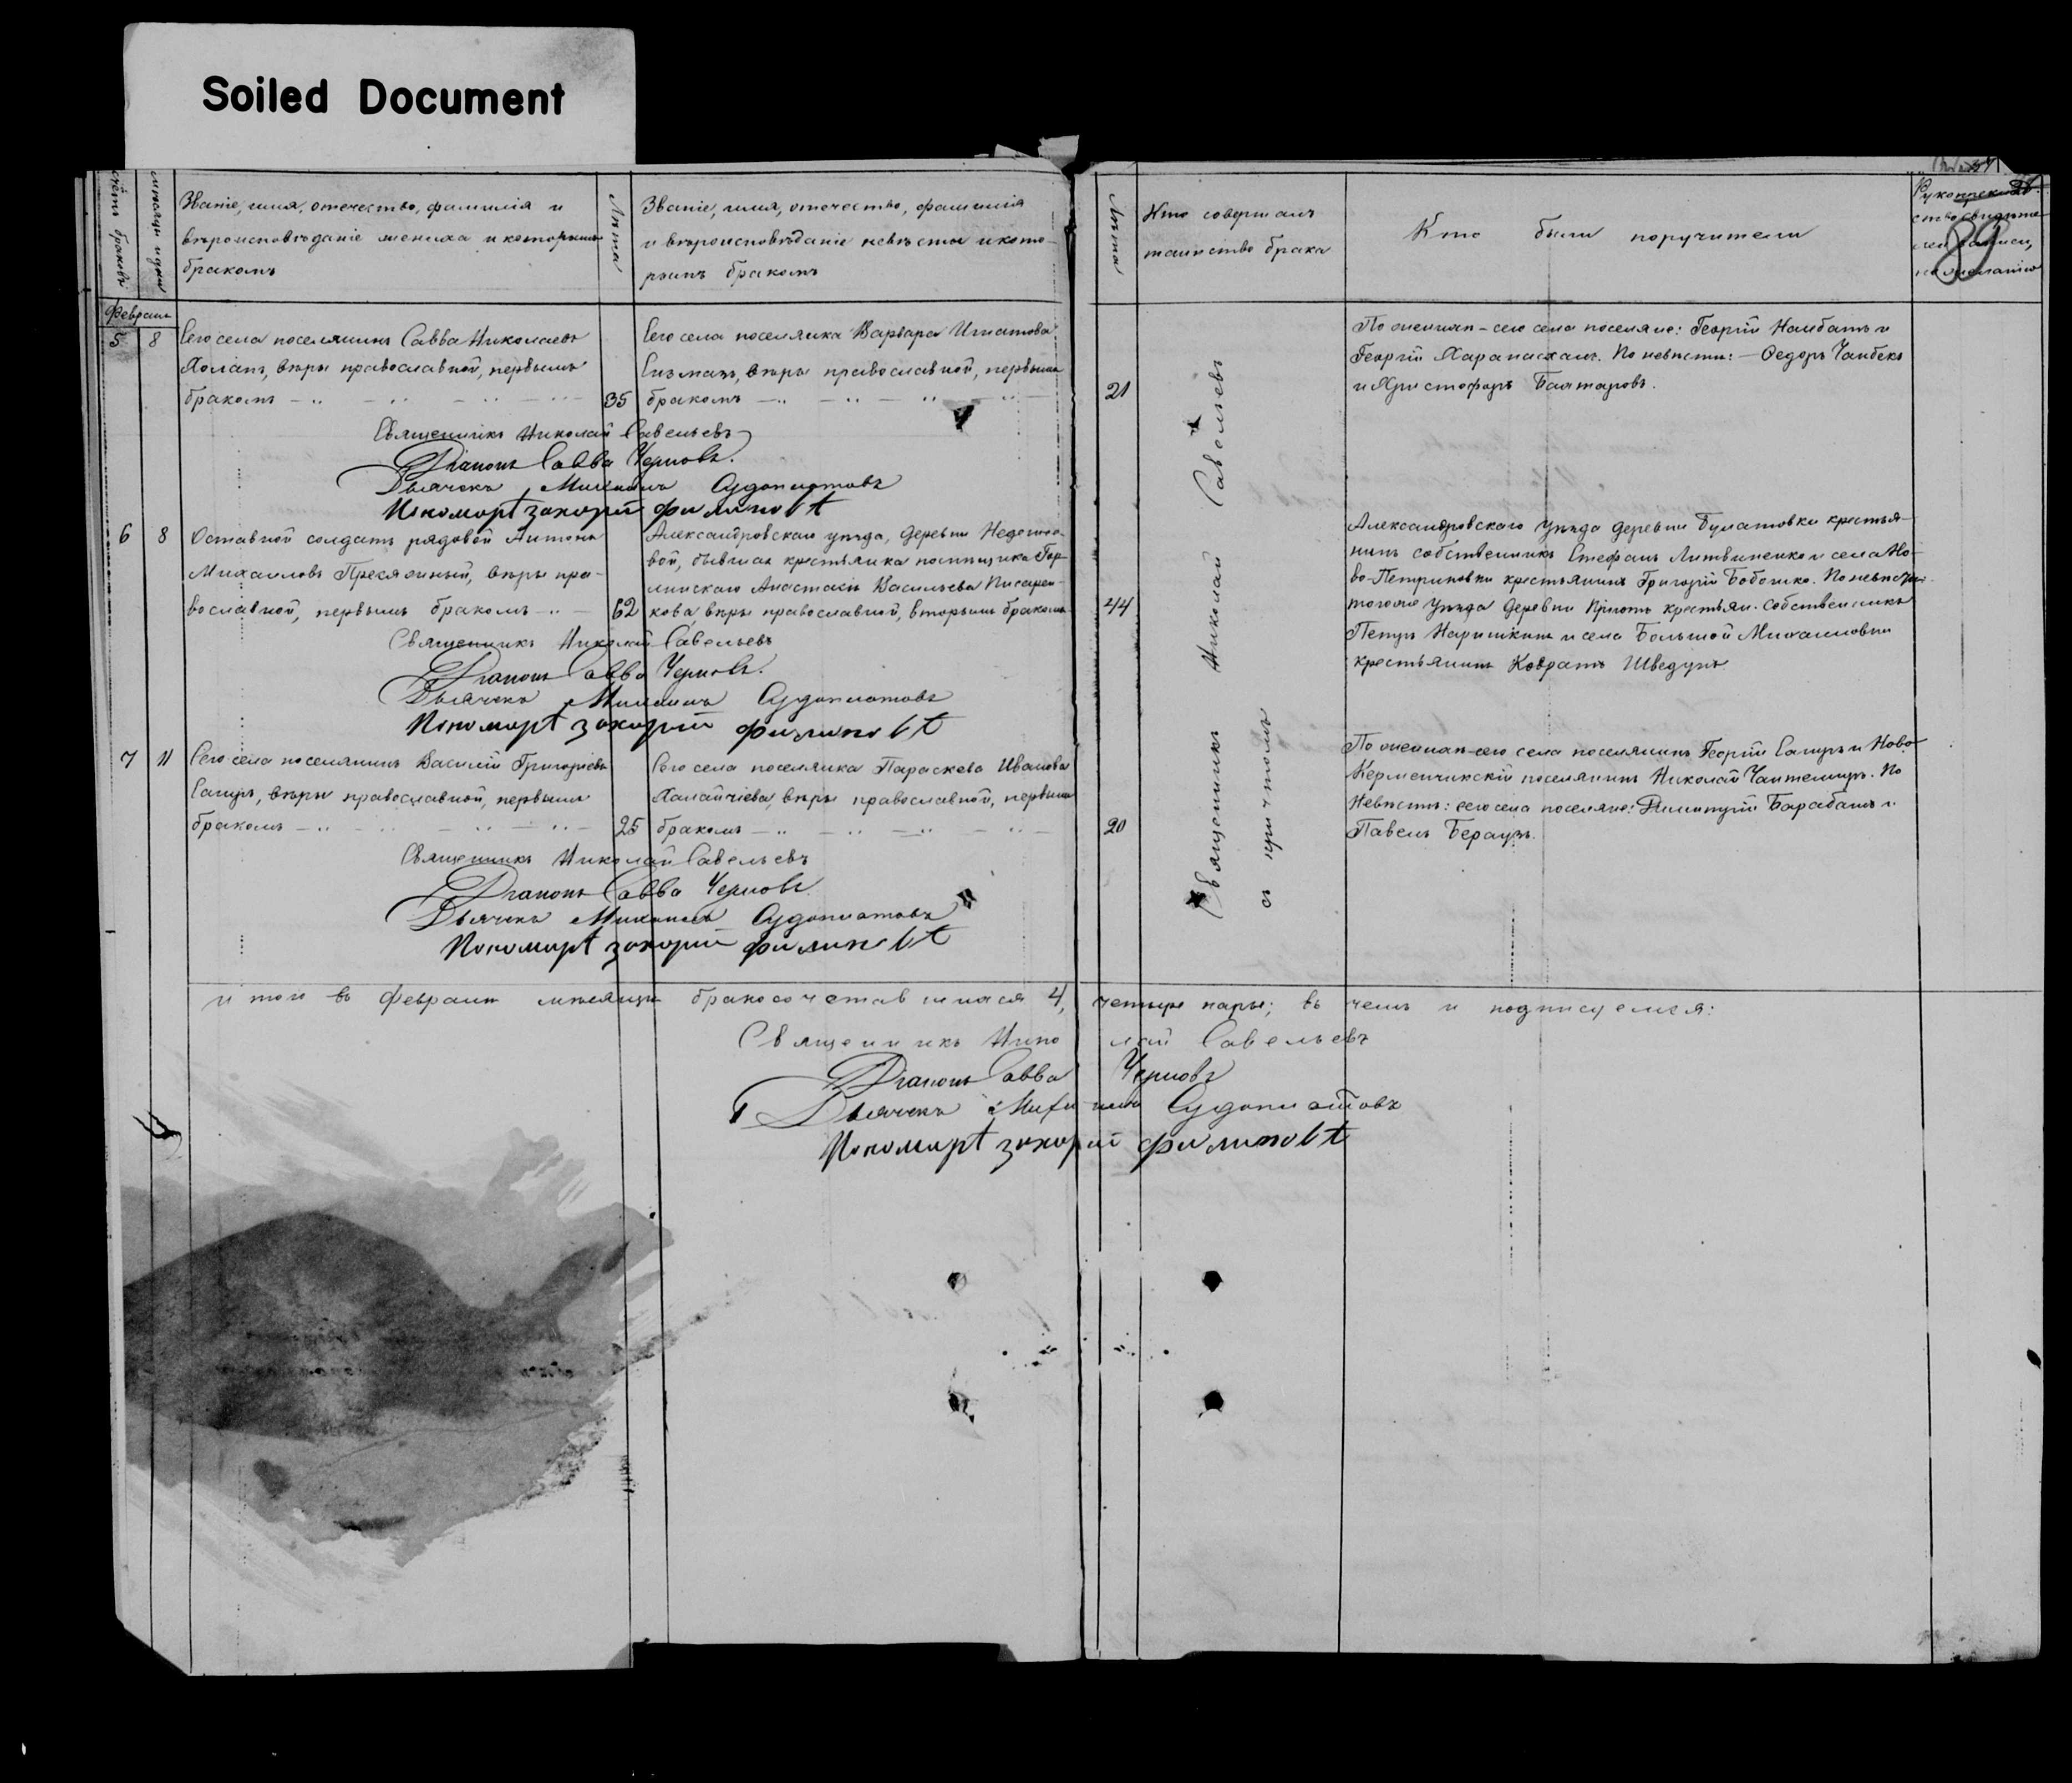 Soiled Document
89
счетъ браковъ
мѣсяцъ и день
Званіе, имя, отечество, фамилія и
вѣроисповѣданіе жениха и которымъ
бракомъ
Лѣта
Званіе, имя, отечество, фамилія
и вѣроисповѣданіе невѣсты и кото-
рымъ бракомъ
Лѣта
Кто совершалъ
таинство брака
Кто были поручители
Февраль
5 8 Сего села поселянинъ Савва Николаевъ
Холапъ, вѣры православной, первымъ
бракомъ 35
Сего села поселянка Варвара Игнатова
вѣры православной, первымъ
бракомъ 21
По женихѣ - сего села поселяне: Георгій Наибатъ и
Георгій Харапасханъ. По невѣсты: - Ѳедоръ Чанбекъ
и Христофоръ Баятаровъ.
Священникъ Николай Савельевъ
Діаконъ Савва Черновъ.
Дьячекъ Михаилъ
Покомарѣ захарій филиповѣ
6 8 Отставной солдатъ рядовой Антонъ
Михаиловъ Пресяжный, вѣры пра-
вославной, первымъ бракомъ 62
Александровскаго уѣзда, деревни
вой, бывшая крестьянка помѣщика Гор-
линскаго Анастасія Васильева Писарен-
кова, вѣры православной, вторымъ бракомъ 44
Александровскаго уѣзда деревни Булатовки крестья-
нинъ собственникъ Стефанъ Литвиненко и села Но-
во-Петриковки крестьянинъ Григорій Бобошко. По невѣсты:
тогоже уѣзда деревни Пріютъ крестьян. собственникъ
Петръ Наришкинъ и села Большой Михаиловки
крестьянинъ Кодратъ Шведунъ.
Священникъ Николай Савельевъ
Діаконъ Савва Черновъ.
Дьячекъ Михаилъ
Покомарѣ захарій филиповѣ
7 11 Сего села поселянинъ Василій Григоріевъ
Сагиръ, вѣры православной, первымъ
бракомъ 25
Сего села поселянка Параскева Иванова
Халайчіева, вѣры православной, первымъ
бракомъ 20
По женихѣ - сего села поселянинъ Георгій Сагиръ и Ново-
Керменчикскій поселянинъ Николай Чантемиръ. По
Невѣсты: сего села поселяне: Димитрій Барабашъ и
Павелъ Бераузъ.
Священникъ Николай Савельевъ
Діаконъ Савва Черновъ.
Дьячекъ Михаилъ
Покомарѣ захарій филиповѣ
Священникъ Николай Савельевъ
съ причтомъ
итого въ Февралѣ мѣсяцѣ бракосочетавшихся 4, четыре пары; въ чемъ и подписуемся:
Священникъ Николай Савельевъ
Діаконъ Савва Черновъ
Дьячекъ Михаилъ
Покомарѣ захарій филиповѣ